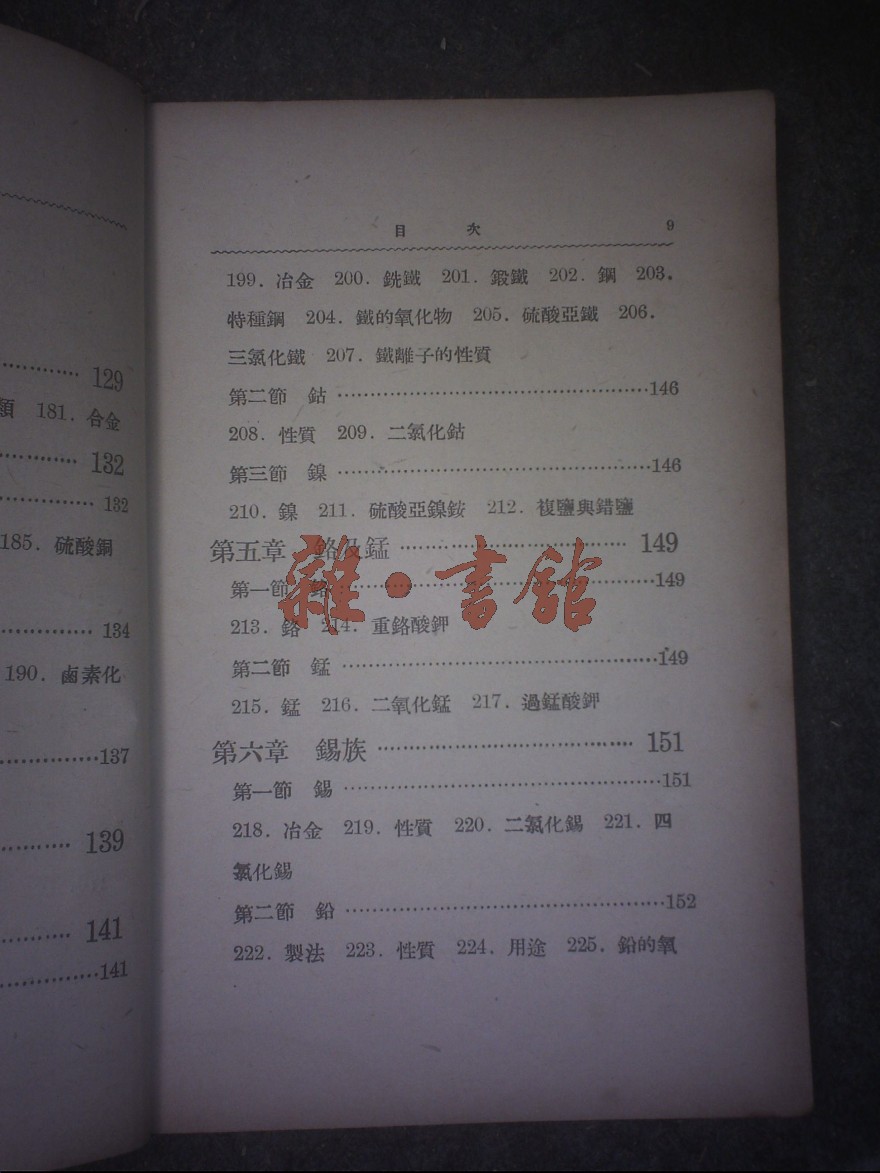 129
類 181．合金
132
132
185．硫酸銅
134
190．鹵素化
137
139
141
141
目 次 9
199．冶金 200．銑鐵 201．鍛鐵 202．鋼 203．
特種鋼 204．鐵的氧化物 205．硫酸亞鐵 206．
三氯化鐵 207．鐵離子的性質
第二節 鈷 ………………………………………146
208．性質 209．二氯化鈷
第三節 鎳 ………………………………………146
210．鎳 211．硫酸亞鎳銨 212．複鹽與錯鹽
第五章 鉻及錳 ………………………… 149
第一節 鉻 ………………………………………149
213．鉻 214．重鉻酸鉀
第二節 錳 ………………………………………149
215．錳 216．二氧化錳 217．過錳酸鉀
第六章 錫族 …………………………… 151
第一節 錫 ………………………………………151
218．冶金 219．性質 220．二氯化錫 221．四
氯化錫
第二節 鉛 ………………………………………152
222．製法 223．性質 224．用途 225．鉛的氧
雜·書館